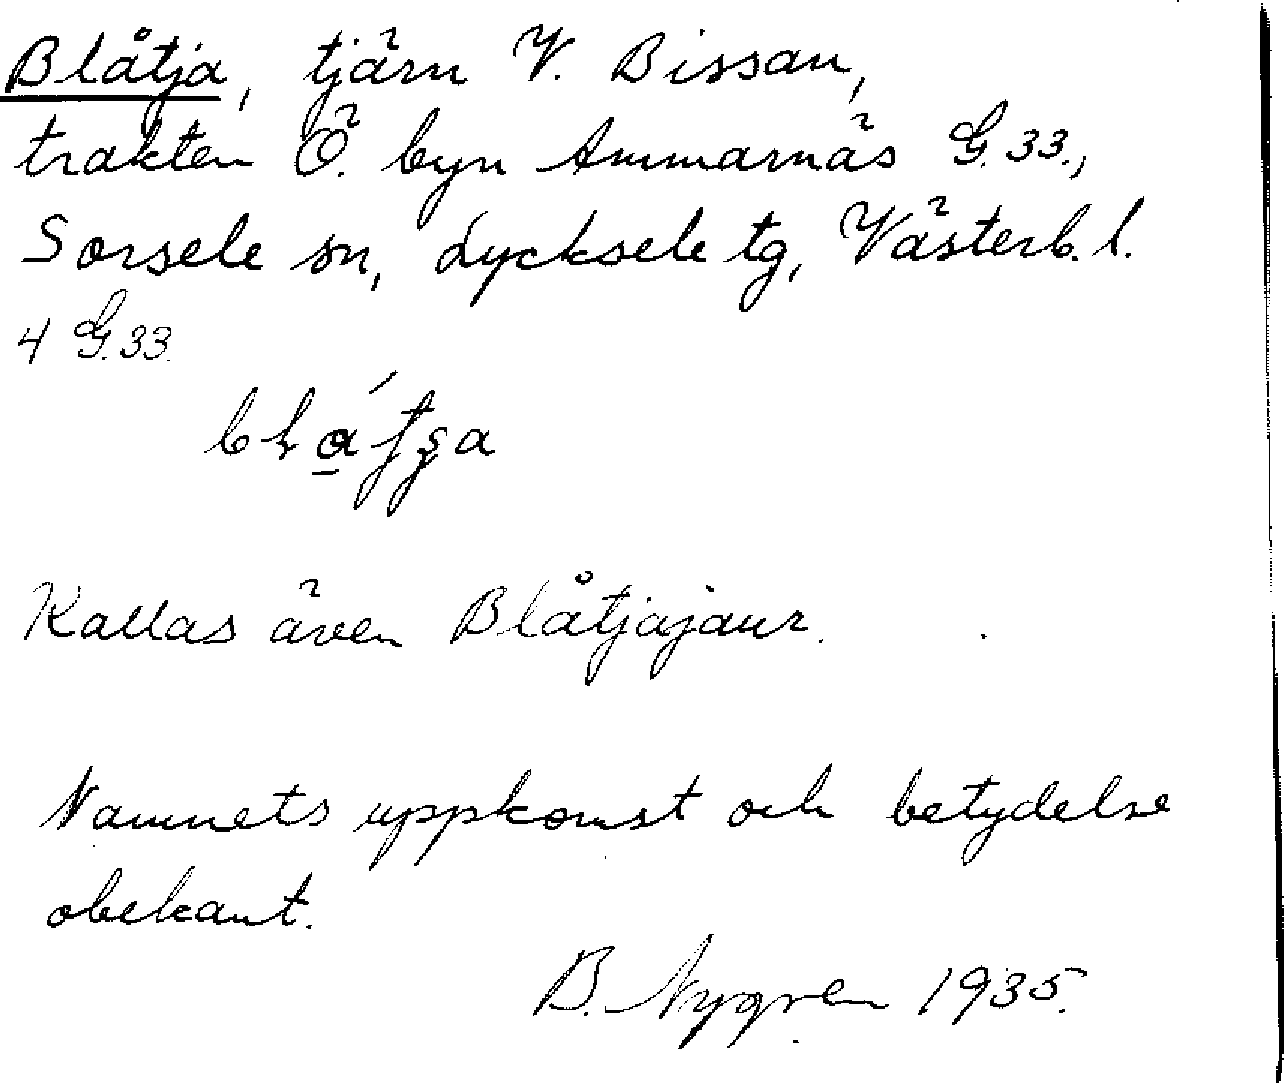 Blåtja, tjärn V. Bissan,
trakten Ö. byn Ammarnäs G. 33.,
Sorsele sn, Lycksele tg, Västerb. l.
4 G. 33.
Kallas även Blåtjajaur.
Namnets uppkomst och betydelse
obekant.
B. Nygren 1935.